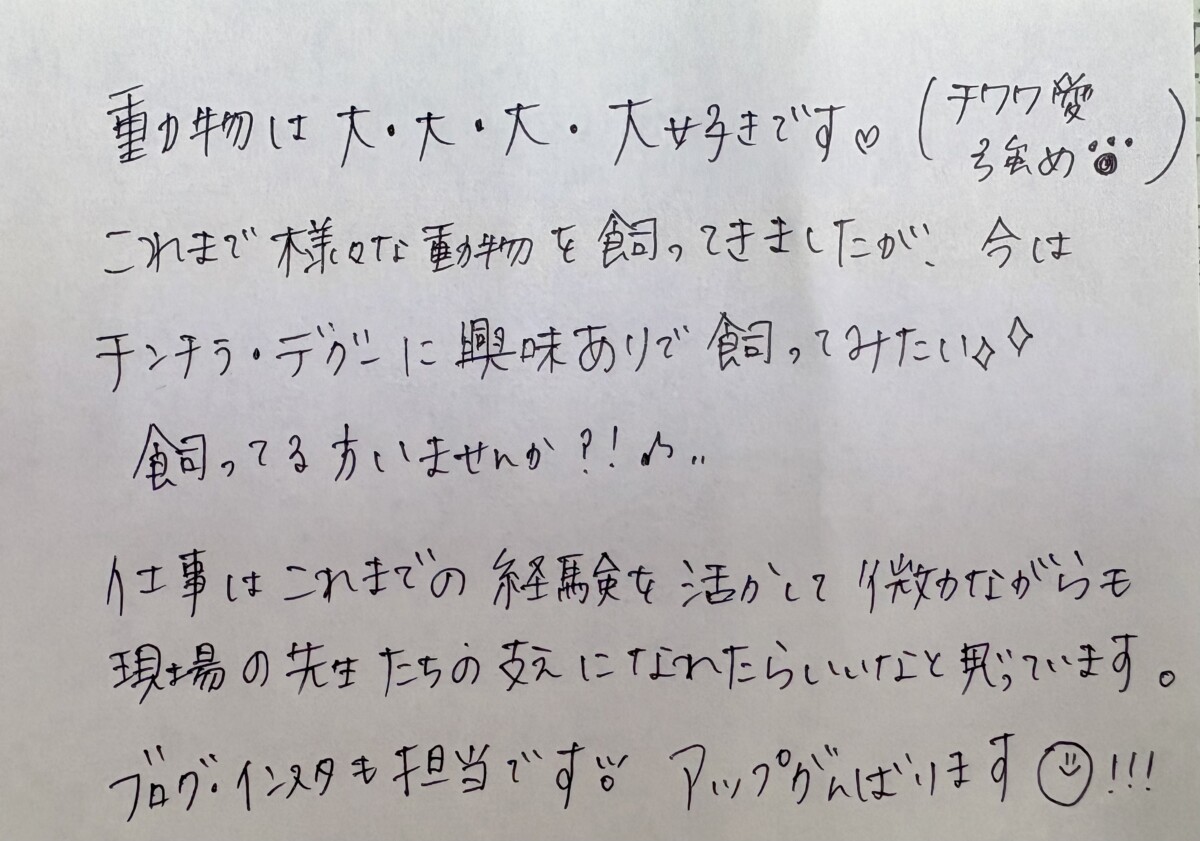 動物は大・大・大・大好きです♡(チワワ愛
強め🐾)
これまで様々な動物を飼ってきましたが、今は
チンチラ・デグーに興味ありで飼ってみたい✧✧
飼ってる方いませんか?!♪..
仕事はこれまでの経験を活かして微力ながらも
現場の先生たちの支えになれたらいいなと思っています。
ブログ・インスタも担当です! アップがんばります☺!!!